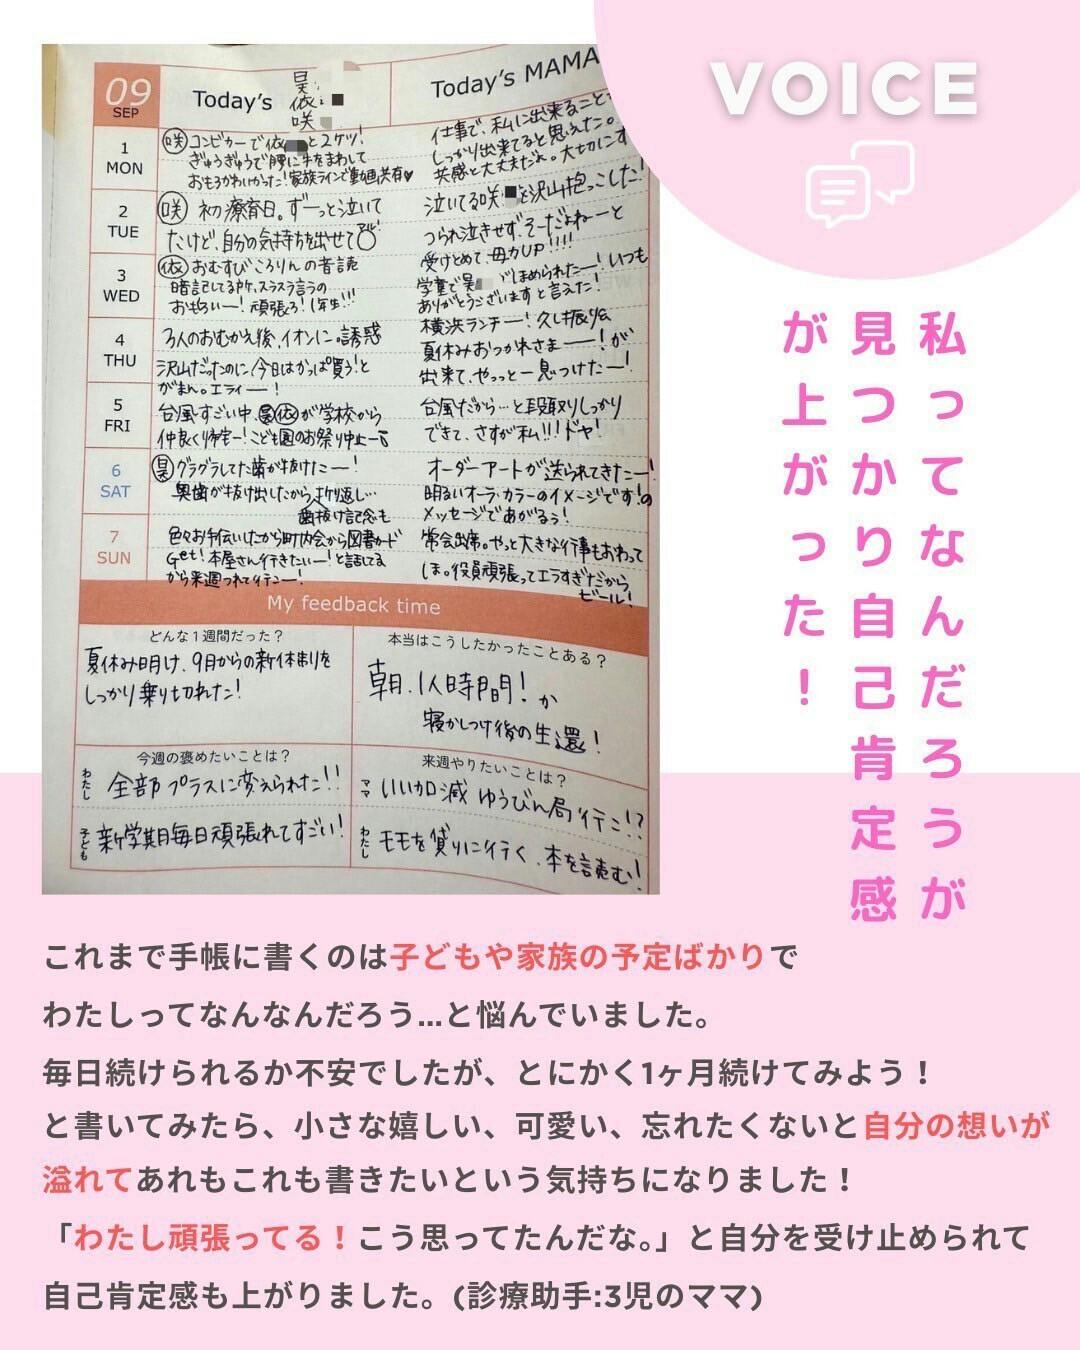 VOICE
私ってなんだろうが
見つかり自己肯定感
が上がった！
09
SEP
Today's
昊
依
咲
Today's MAMA
1
MON
咲 コンビカーで依 と2ケツ!
ぎゅうぎゅうで腰に手をまわして
おもろかわいかった!家族ラインで動画共有♥
仕事で、私に出来ること
しっかり出来てると思えた。
共感と大丈夫だよ。大切にす
2
TUE
咲 初療育日。ずーっと泣いて
たけど、自分の気持ちを出せて
泣いてる咲 を沢山抱っこした!
つられ泣きせず、そーだよねーと
受けとめて、母力UP!!!!
3
WED
依 おむすびころりんの音読
暗記してるけど、スラスラ言うの
おもろいー!頑張ろ!1年生!!!
学童で昊 がほめられたー!いつも
ありがとうございますと言えた!
4
THU
3人のおむかえ後、イオンに。誘惑
沢山だったのに「今日はかっぱ買う!」と
がまん。エライー!
横浜ランチー!久し振り会
夏休みおつかれさまー!が
出来て、やっっと一息つけたー!
5
FRI
台風すごい中、昊依が学校から
仲良く帰宅ー!こども園のお祭り中止ー
台風だから…と段取りしっかり
できて、さすが私!!!ドヤ!
6
SAT
昊 グラグラしてた歯が抜けたー!
奥歯が抜け出したから折り返し…
歯抜け記念も
オーダーアートが送られてきたー!
明るいオーラ・カラーのイメージです!の
メッセージであがるぅ!
7
SUN
色々お手伝いしたから町内会から図書カード
Get!本屋さん行きたいー!と話してる
から来週つれて行こー!
常会出席。やっと大きな行事もおわって
ほ。役員頑張ってエラすぎだから
ビール!
My feedback time
どんな1週間だった？
夏休み明け、9月からの新体制りを
しっかり乗り切れた!
本当はこうしたかったことある？
朝、1人時間!か
寝かしつけ後の生還!
今週の褒めたいことは？
わたし 全部プラスに変えられた!!
子ども 新学期毎日頑張れてすごい!
来週やりたいことは？
ママ いい加減 ゆうびん局行こ!?
わたし モモを借りに行く、本を読む!
これまで手帳に書くのは子どもや家族の予定ばかりで
わたしってなんなんだろう...と悩んでいました。
毎日続けられるか不安でしたが、とにかく1ヶ月続けてみよう！
と書いてみたら、小さな嬉しい、可愛い、忘れたくないと自分の想いが
溢れてあれもこれも書きたいという気持ちになりました！
「わたし頑張ってる！こう思ってたんだな。」と自分を受け止められて
自己肯定感も上がりました。(診療助手:3児のママ)